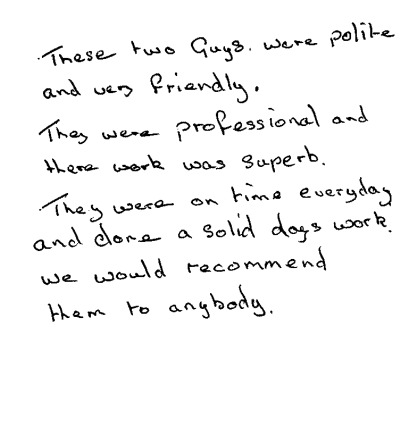 These two Guys. were polite
and very friendly.
They were professional and
there work was superb.
They were on time everyday
and done a solid days work.
we would recommend
them to anybody.